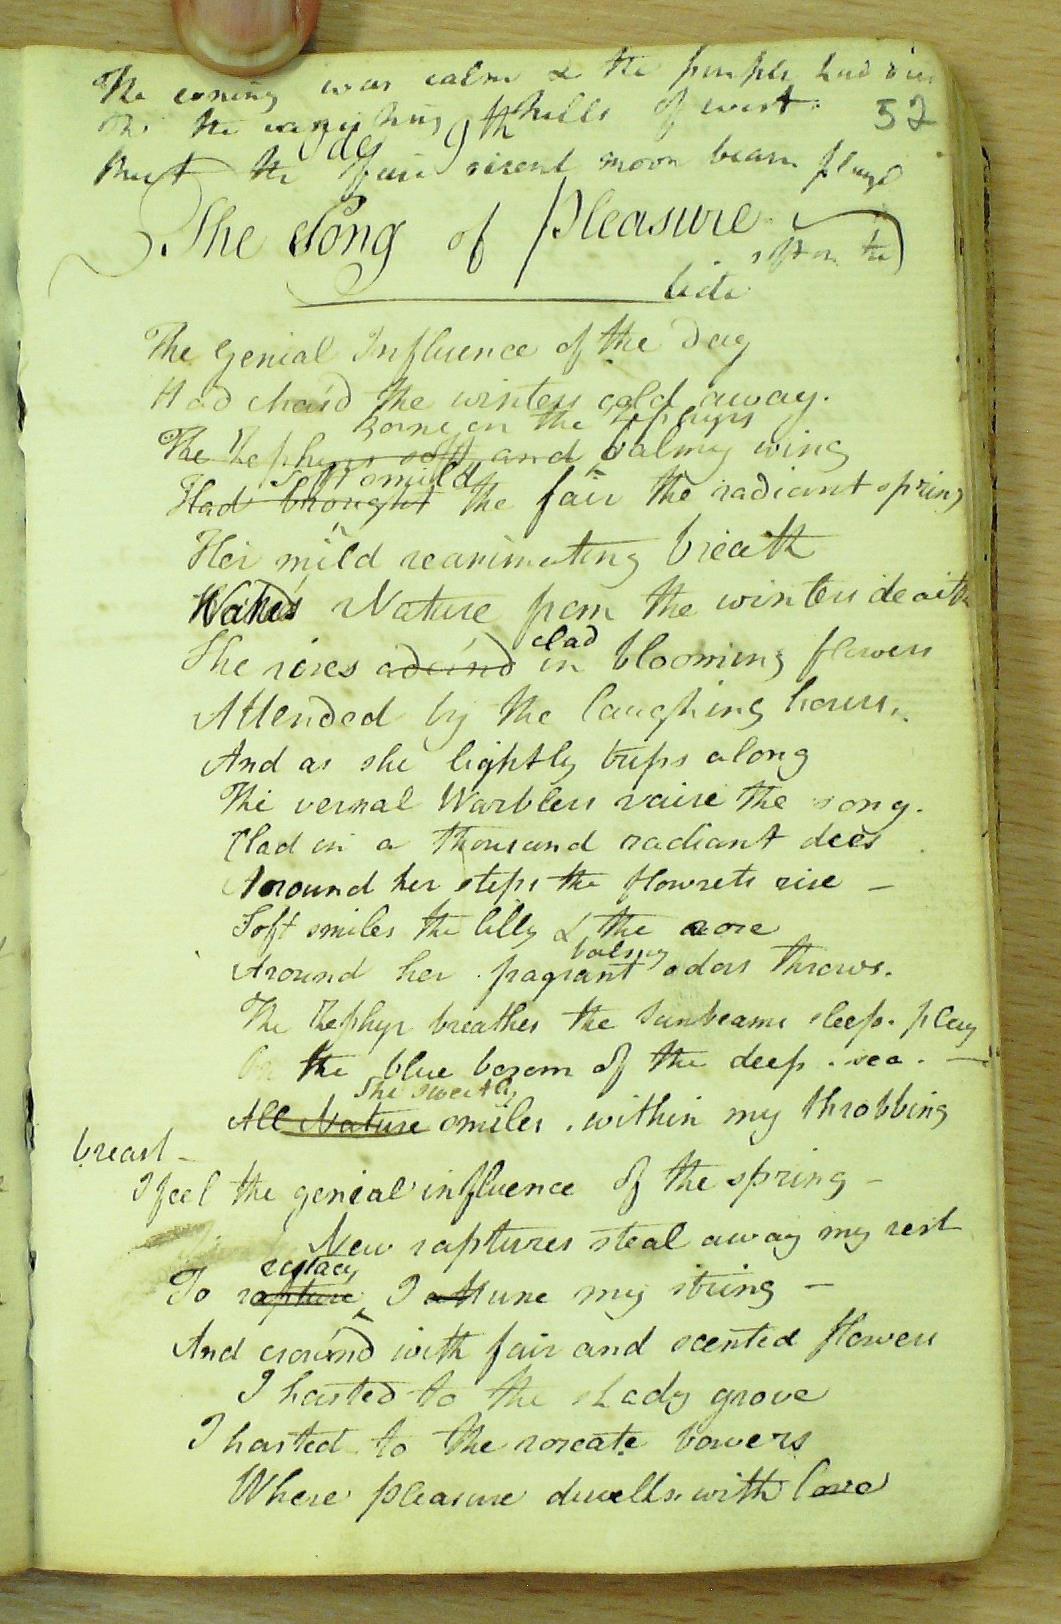 The evening was calm & the purple had
52
the hills of west.
But the fair risent moon beam playd
The Song of Pleasure
soft on the
tide
The Genial Influence of the Day
Had chas'd the winters cold away.
Borne on the Zephyrs
The Zephyrs soft and balmy wing
Soft smild
Had brought the fair the radiant spring
Her mild reanimating breath
Wakes Nature from the winters death
clad
She rises adornd in blooming flowers
Attended by the laughing hours.
And as she lightly trips along
The vernal Warblers raise the song.
Clad in a thousand radiant dies
Around her steps the flowrets rise –
Soft smiles the lilly & the rose
balmy
Around her fragrant odors throws.
The Zephyr breathes the sunbeams sleep. play
On the blue bosom of the deep. sea. —
She sweetly
All Nature smiles. within my throbbing
breast –
I feel the genial influence of the spring –
New raptures steal away my rest
ecstacy
To rapture I attune my string –
And crown'd with fair and scented flowers
I hasted to the shady grove
I hasted to the roseate bowers
Where pleasure dwells with love